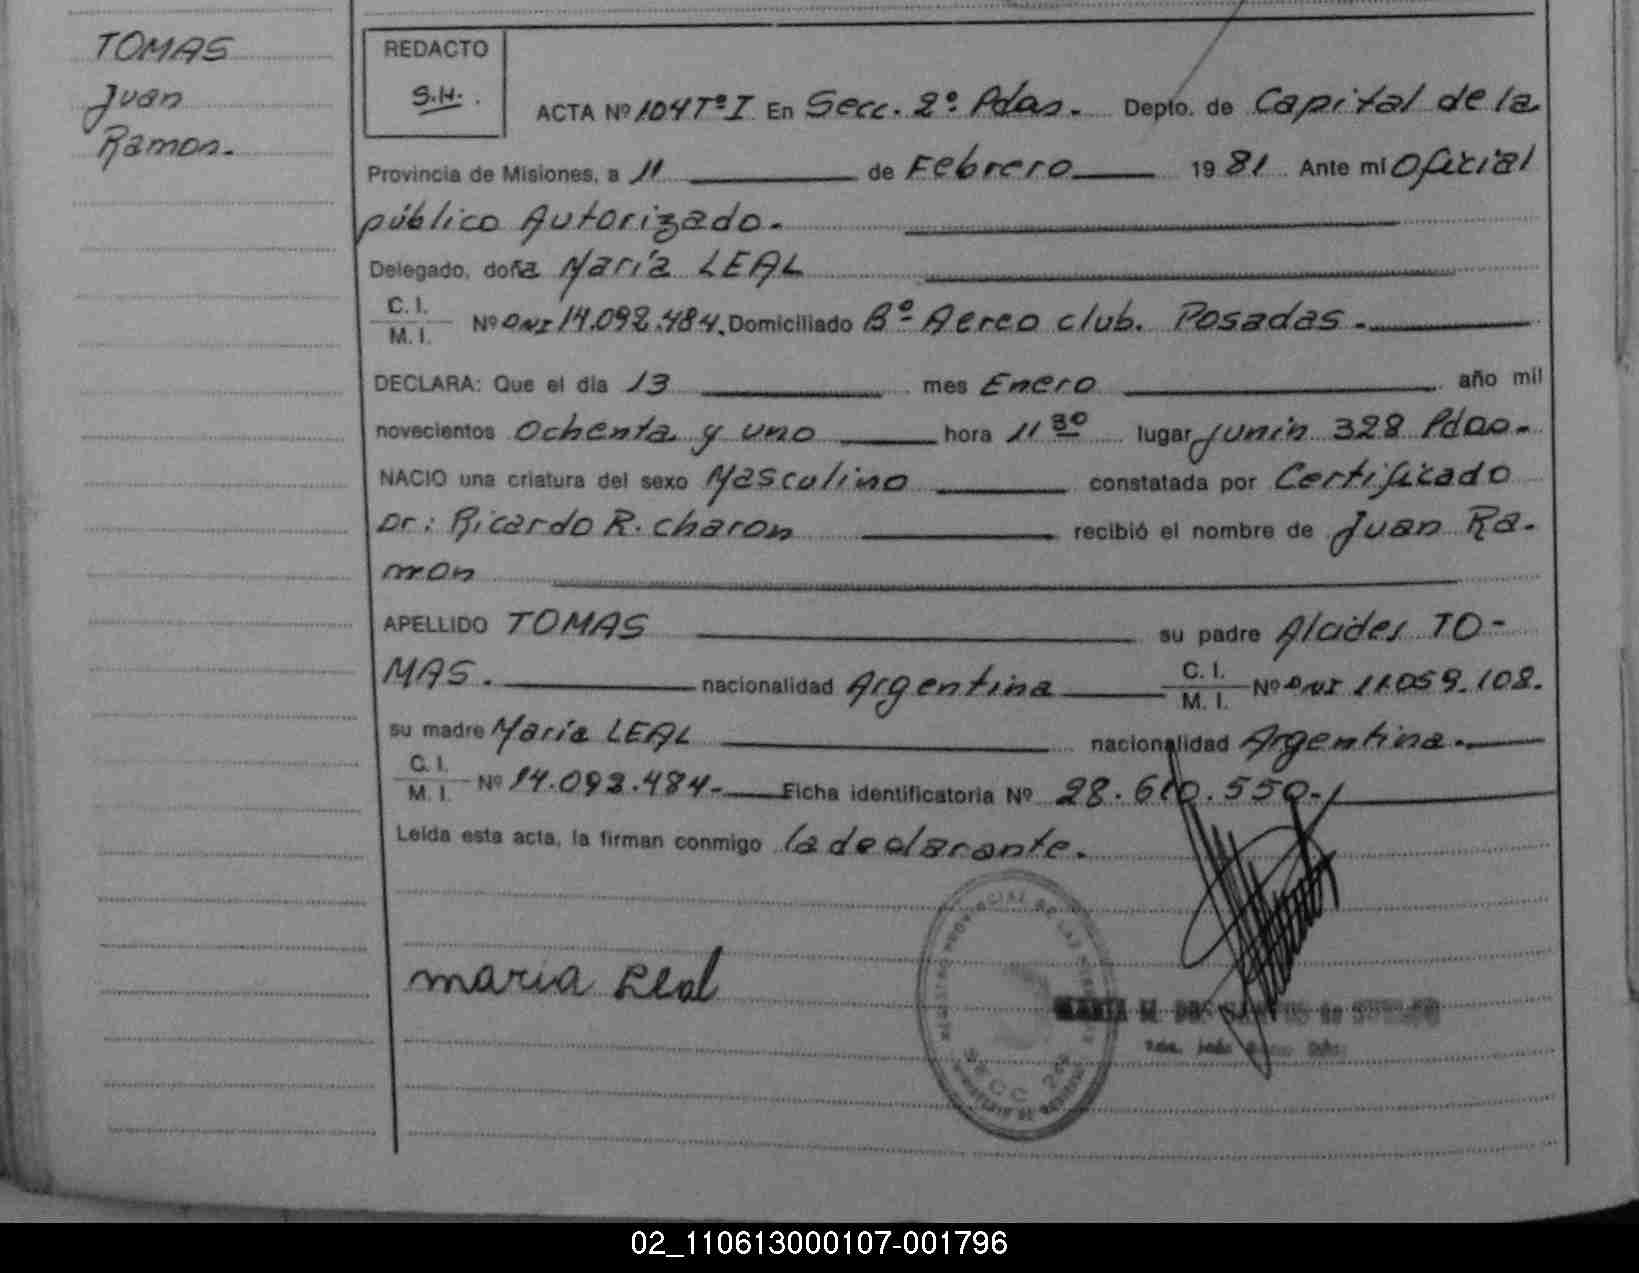 TOMAS
Juan
Ramon.
REDACTO
S.H.
ACTA Nº 104 Tº I En Secc. 2º Pdas. Depto. de Capital de la
Provincia de Misiones, a 11 de Febrero 1981 Ante mi Oficial
público Autorizado.
Delegado, doña María LEAL
C. I.
M. I.
Nº DNI 14.092.484. Domiciliado Bº Aereo club. Posadas.
DECLARA: Que el día 13 mes Enero año mil
novecientos Ochenta y uno hora 11 30 lugar Junín 328 Pdas.
NACIO una criatura del sexo Masculino constatada por Certificado
Dr: Ricardo R. Charon recibió el nombre de Juan Ra-
mon
APELLIDO TOMAS su padre Alcides TO-
MAS. nacionalidad Argentina C. I.
M. I.
Nº DNI 11.059.108.
su madre María LEAL nacionalidad Argentina.
C. I.
M. I.
Nº 14.092.484- Ficha identificatoria Nº 28.610.550-
Leída esta acta, la firman conmigo la declarante.
maria Leal
SECC 2da
MARIA M. DOS SANTOS de
02_110613000107-001796